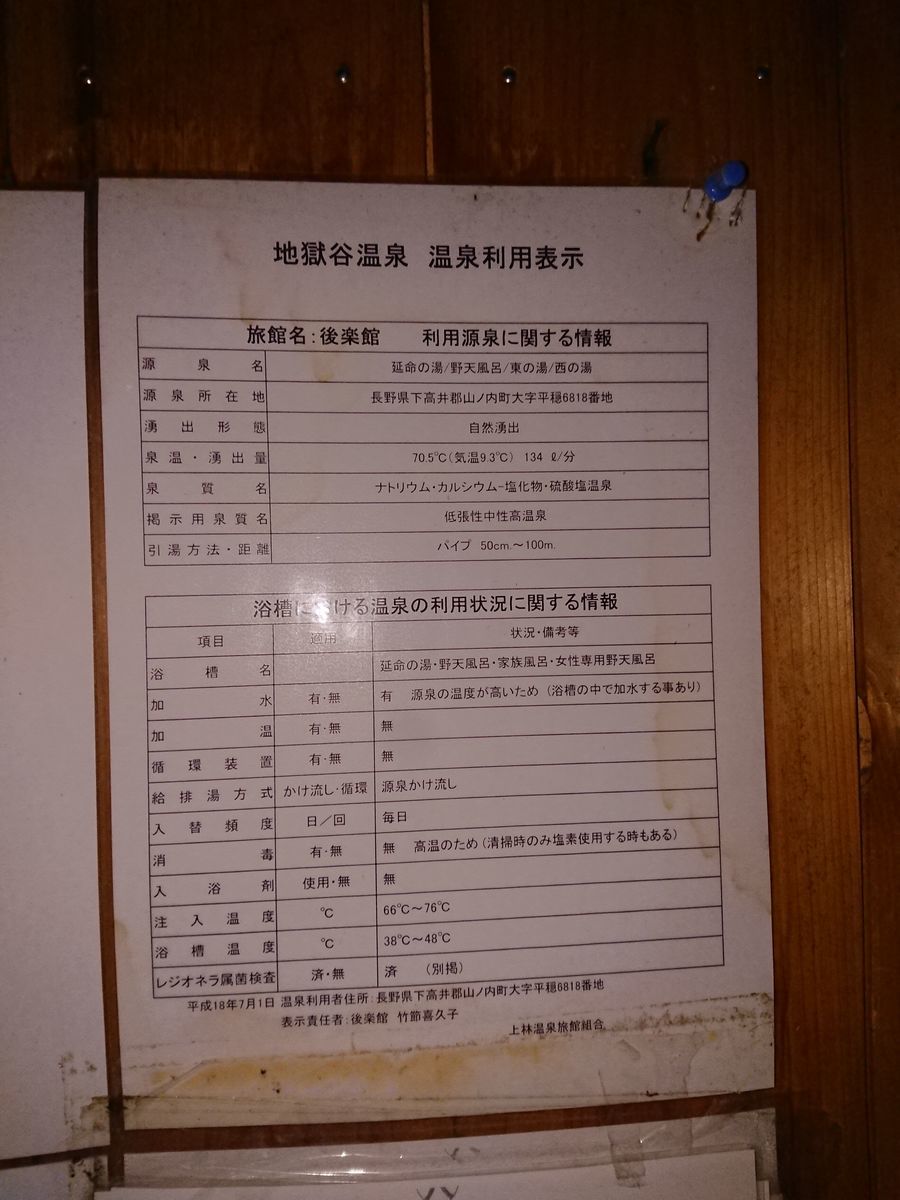 地獄谷温泉 温泉利用表示
旅館名：後楽館 利用源泉に関する情報
源泉名 延命の湯/野天風呂/東の湯/西の湯
源泉所在地 長野県下高井郡山ノ内町大字平穏6818番地
湧出形態 自然湧出
泉温・湧出量 70.5℃（気温9.3℃） 134 ℓ/分
泉質名 ナトリウム・カルシウム-塩化物・硫酸塩温泉
掲示用泉質名 低張性中性高温泉
引湯方法・距離 パイプ 50cm.～100m.
浴槽における温泉の利用状況に関する情報
項目 適用 状況・備考等
浴槽名 延命の湯・野天風呂・家族風呂・女性専用野天風呂
加水 有・無 有 源泉の温度が高いため（浴槽の中で加水する事あり）
加温 有・無 無
循環装置 有・無 無
給排湯方式 かけ流し・循環 源泉かけ流し
入替頻度 日／回 毎日
消毒 有・無 無 高温のため（清掃時のみ塩素使用する時もある）
入浴剤 使用・無 無
注入温度 ℃ 66℃～76℃
浴槽温度 ℃ 38℃～48℃
レジオネラ属菌検査 済・無 済 （別掲）
平成18年7月1日 温泉利用者住所：長野県下高井郡山ノ内町大字平穏6818番地
表示責任者：後楽館 竹節喜久子
上林温泉旅館組合